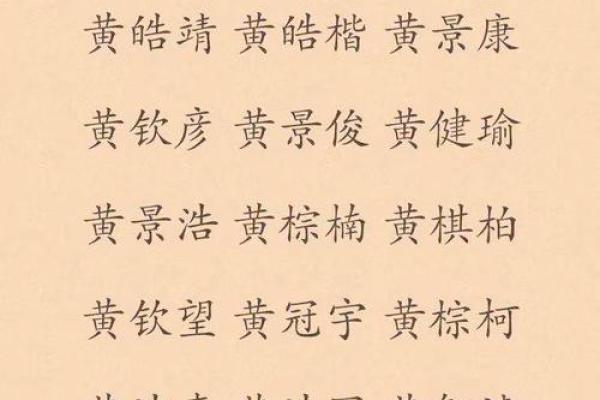 黄皓靖 黄皓楷 黄景康
黄钦彦 黄景俊 黄健瑜
黄景浩 黄棕楠 黄棋柏
黄钦望 黄冠宇 黄棕柯